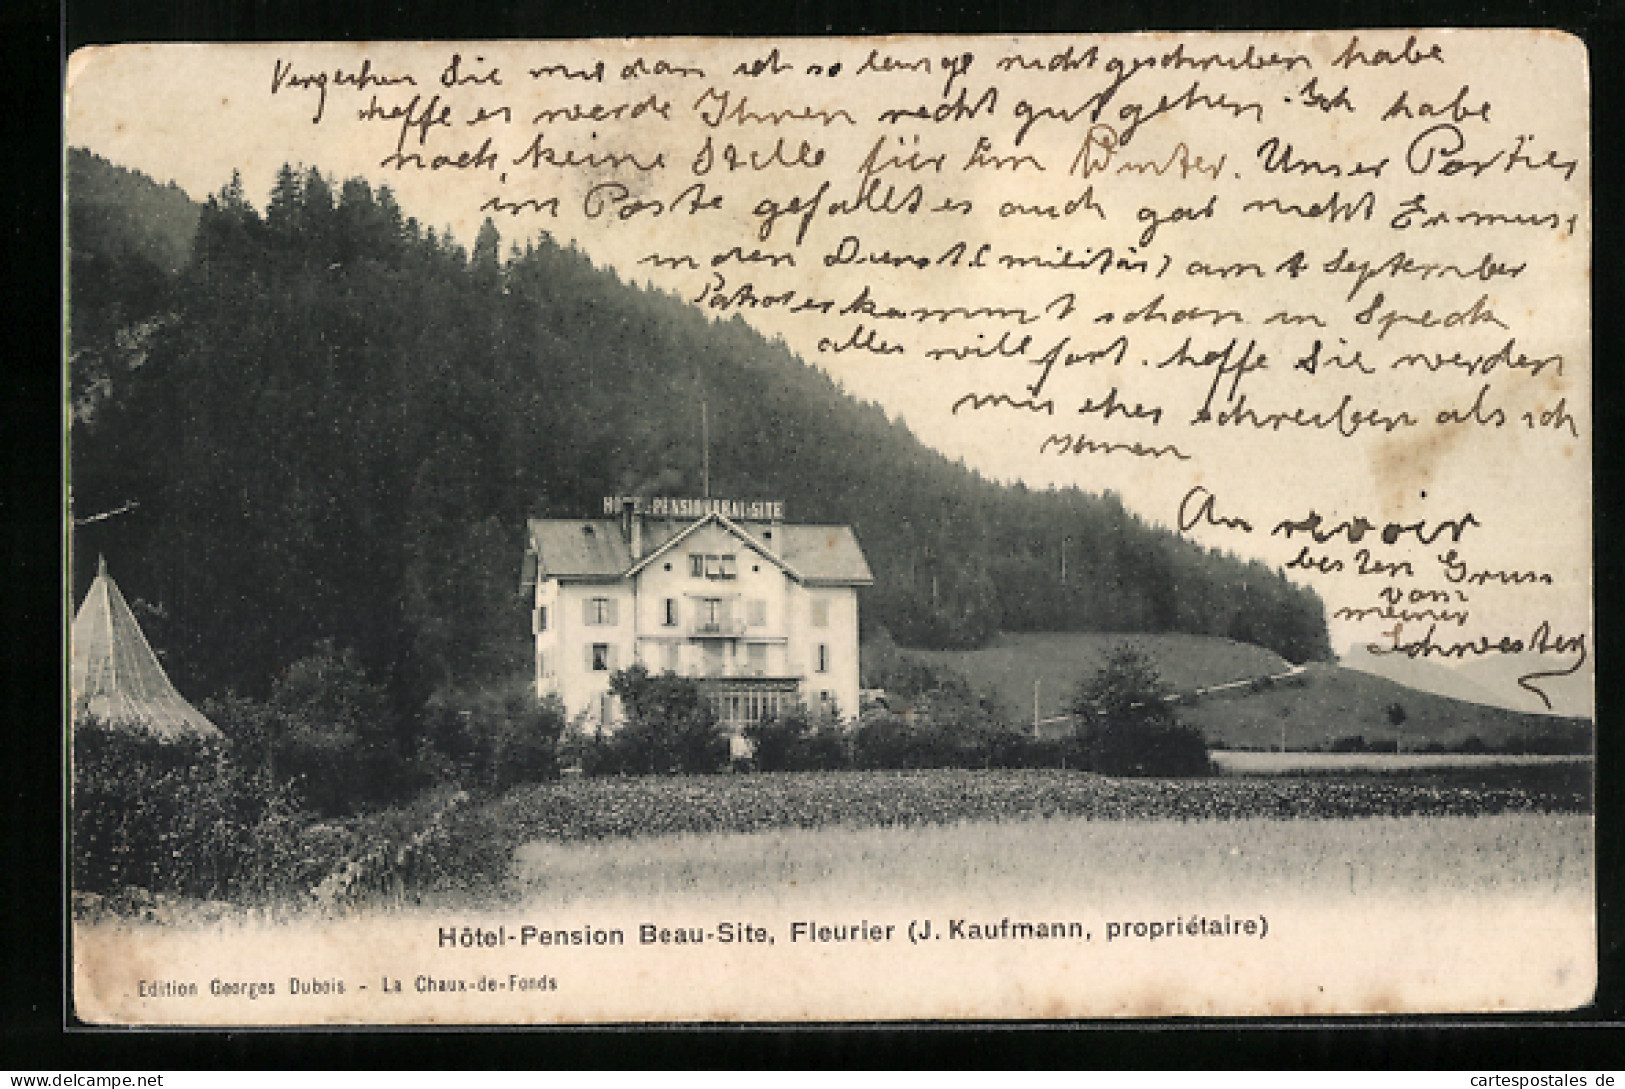 Vergeihen Sie mir dan ich so lange nicht geschrieben habe
hoffe es werde Ihnen recht gut gehen. Ich habe
noch keine Stelle für im Winter. Unser Portier
im Poste gefallt es auch gar nicht Er muss
in den Dienst (militär) am 1 September
kommt schon in Speck
alles will fort. hoffe Sie werden
mir eher schreiben als ich
Ihnen
Au revoir
besten Gruss
von
meiner
Schwester
HOTEL-PENSION BEAU-SITE
Hôtel-Pension Beau-Site, Fleurier (J. Kaufmann, propriétaire)
Edition Georges Dubois - La Chaux-de-Fonds
www.cartespostales.de